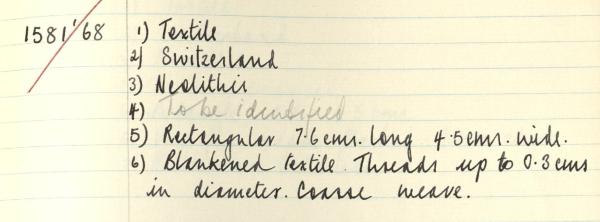 1581'68 1) Textile
2) Switzerland
3) Neolithic
4) To be identified
5) Rectangular 7.6 cms. long 4.5 cms. wide.
6) Blankened textile. Threads up to 0.3 cms
in diameter. Coarse weave.